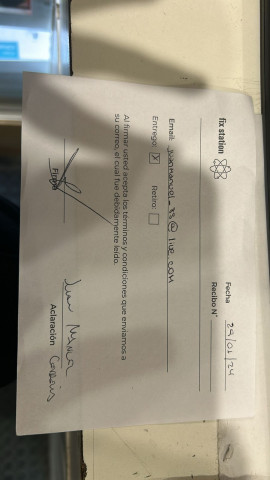 fix station
Fecha 29/01/24
Recibo N°
Email: juanmanuel_35@live.com
Entrega: X Retiro:
Al firmar usted acepta los términos y condiciones que enviamos a
su correo, el cual fue debidamente leído.
Juan Manuel
Firma Aclaración